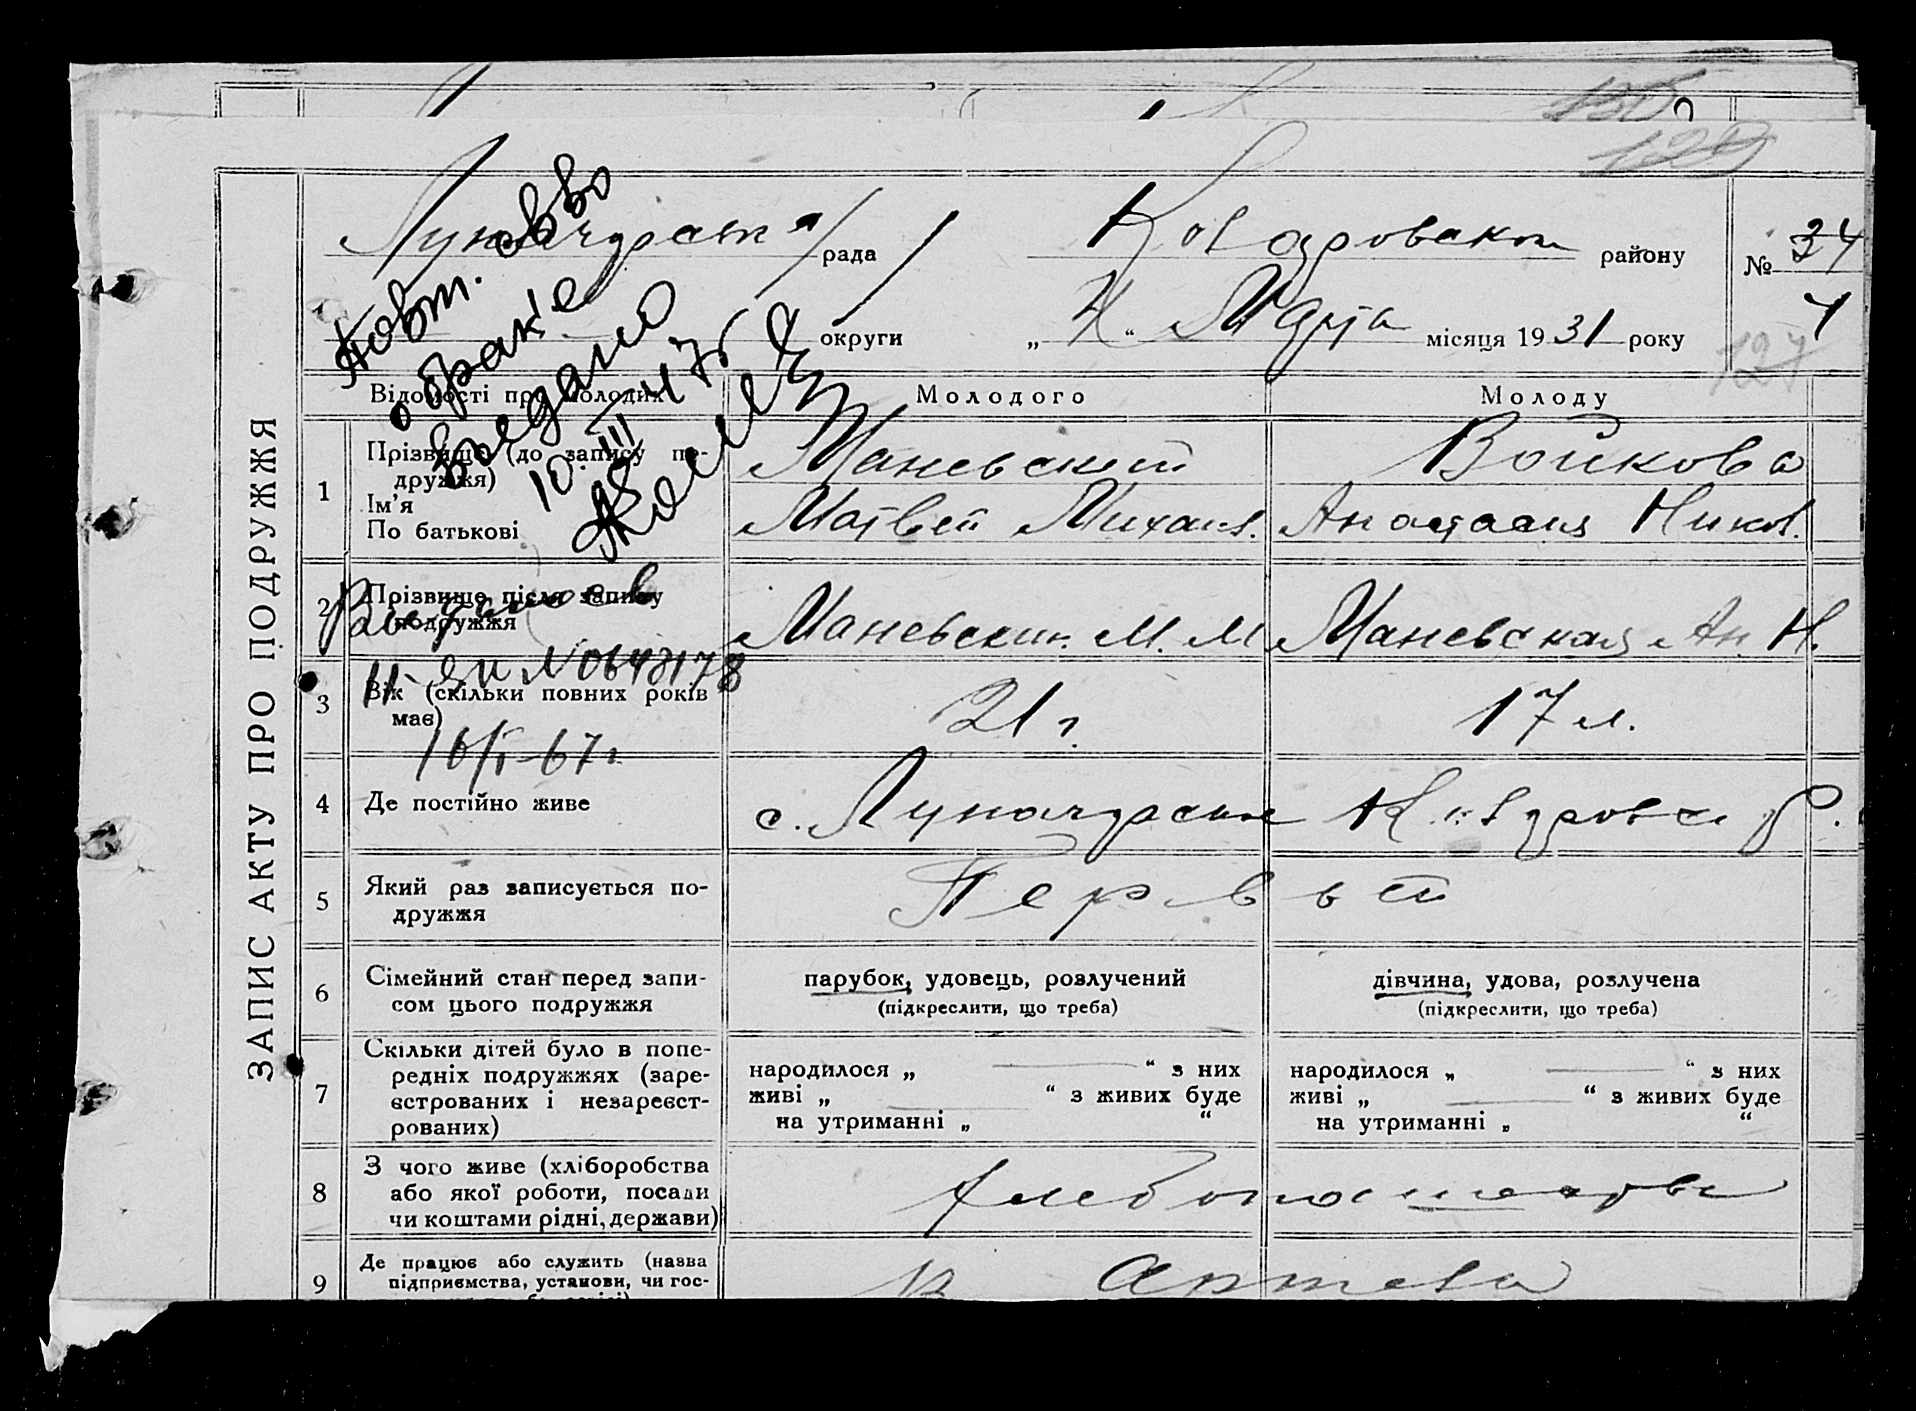 ЗАПИС АКТУ ПРО ПОДРУЖЖЯ
рада району № 34
округи „ “ Марта місяця 1931 року 4
127
Повт. св-во
о браке
выдано
10. III 1976
Відомості про молодих Молодого Молоду
1 Прізвище (до запису по-
дружжя) Маневский Войкова
Ім'я
По батькові Матвей Михаил. Анастасия Никол.
2 Прізвище після запису
подружжя Маневский. М. М Маневская Ан. Н.
3 Вік (скільки повних років
має) 21 г. 17 л.
16/I-67г
4 Де постійно живе с. р.
5 Який раз записується по-
дружжя Первый
6 Сімейний стан перед запи-
сом цього подружжя
парубок, удовець, розлучений
(підкреслити, що треба)
дівчина, удова, розлучена
(підкреслити, що треба)
7 Скільки дітей було в попе-
редніх подружжях (заре-
єстрованих і незареєст-
рованих)
народилося „ “ з них
живі „ “ з живих буде
на утриманні „ “
народилося „ “ з них
живі „ “ з живих буде
на утриманні „ “
8 З чого живе (хліборобства
або якої роботи, посади
чи коштами рідні, держави)
9 Де працює або служить (назва
підприємства, установи, чи гос-